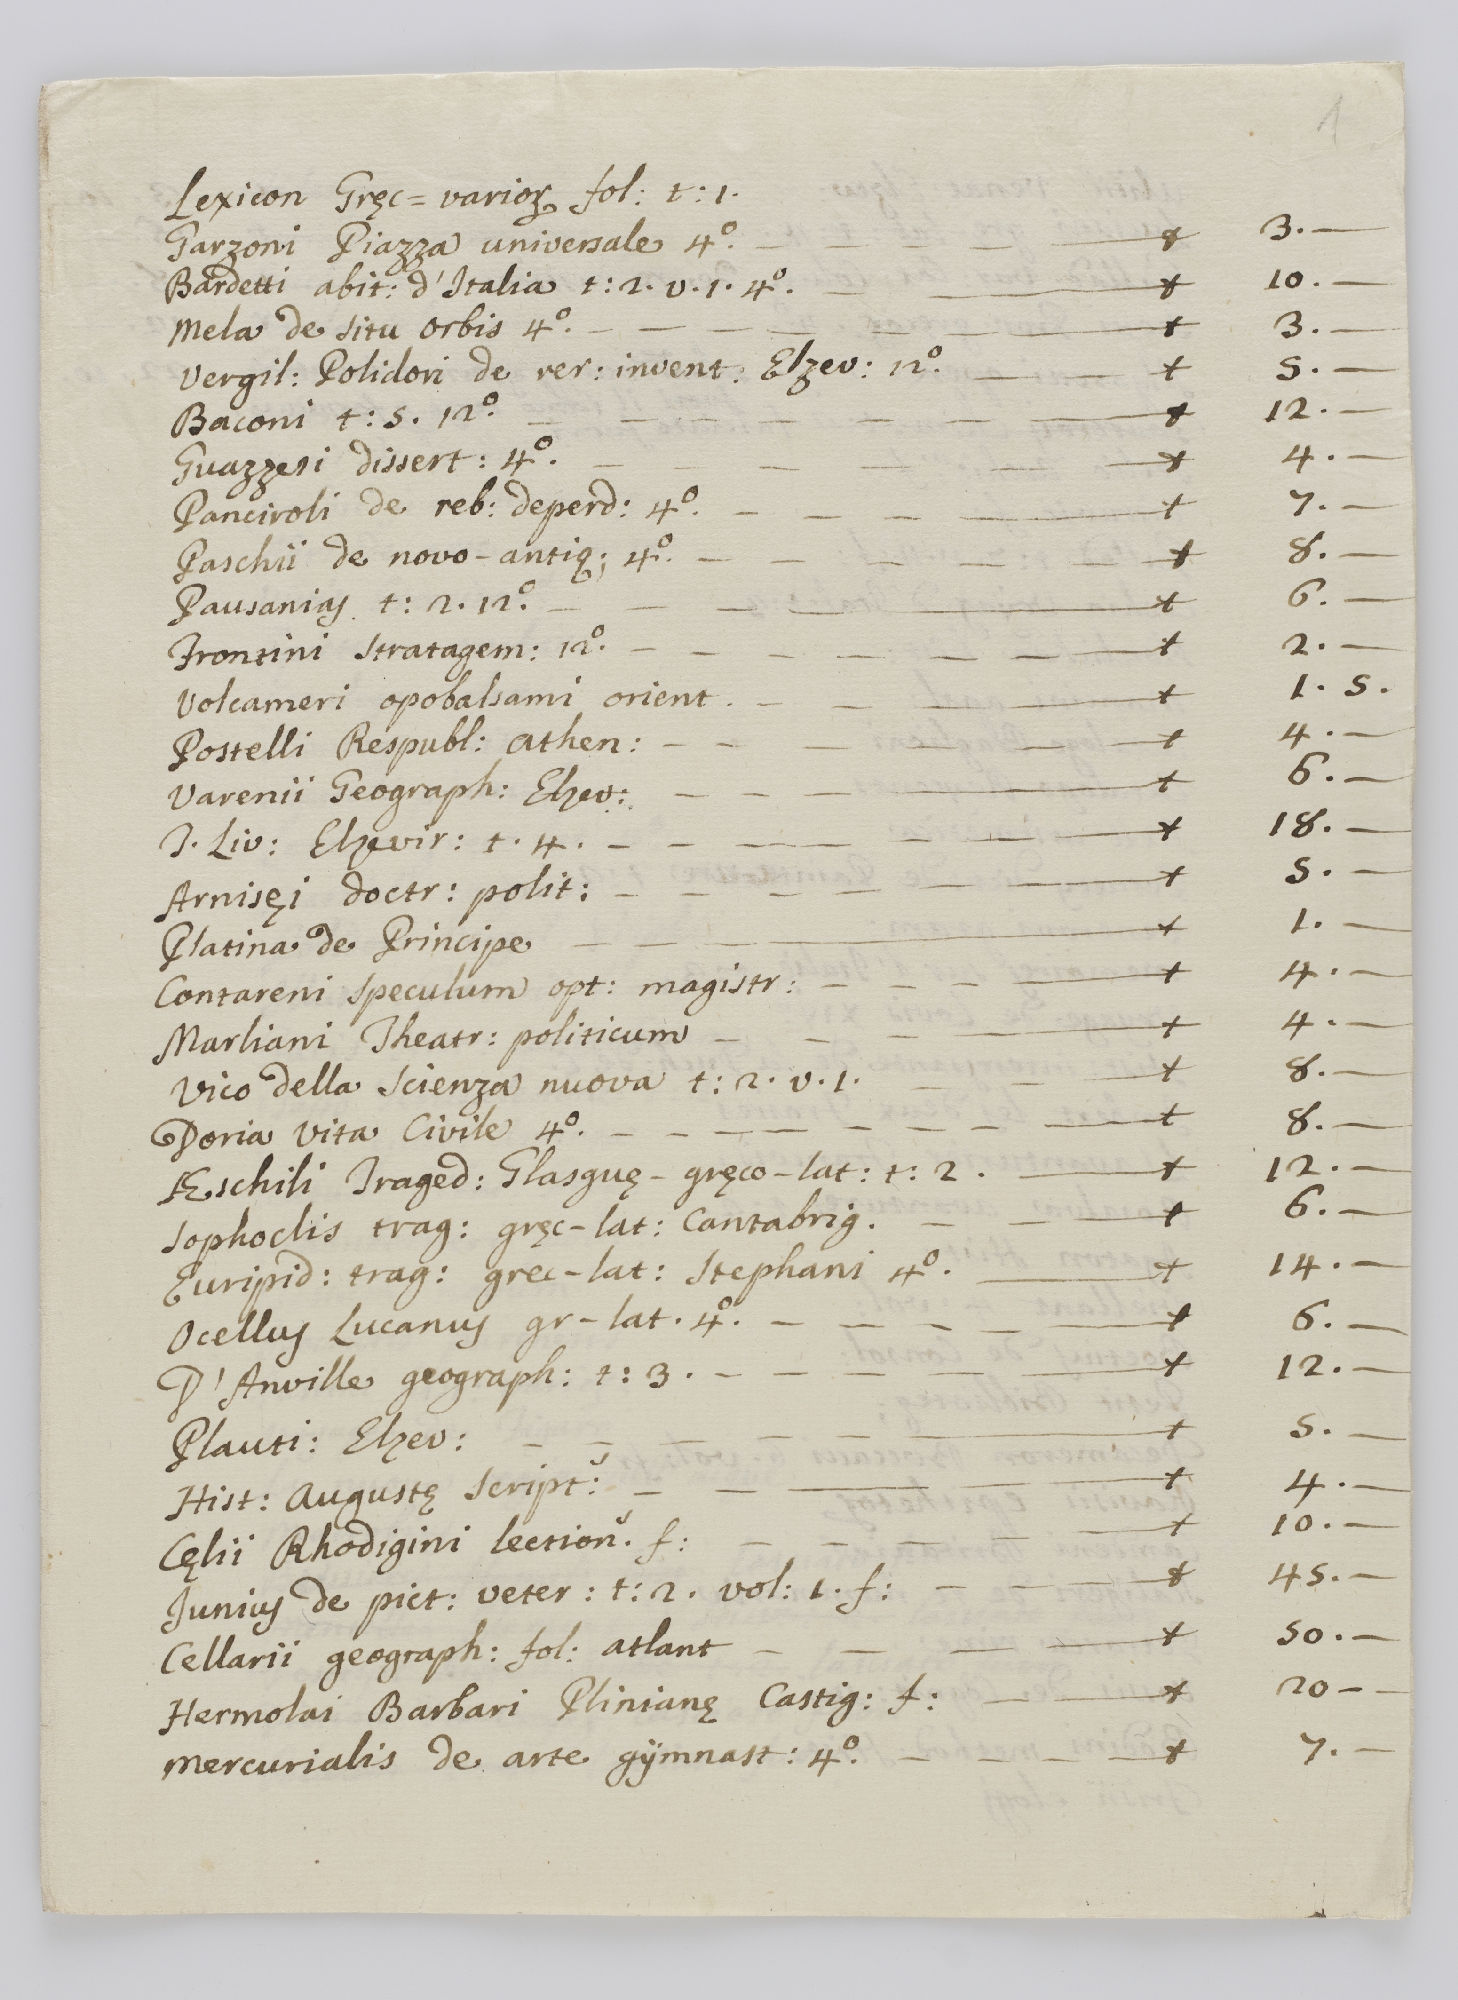 1
Lexicon Gręc= varioꝝ fol: t: 1.
Garzoni Piazza universale 4º. — — — + 3. —
Bardetti abit: d'Italia t: 2. v. 1. 4º. — — + 10. —
Mela de situ orbis 4º. — — — — — — + 3. —
Vergil: Polidori de rer: invent: Elzev: 12º. — — + 5. —
Baconi t: 5. 12º. — — — — — — + 12. —
Guazzesi dissert: 4º. — — — — — + 4. —
Panciroli de reb: deperd: 4º. — — — — + 7. —
Paschii de novo-antiq; 4º. — — — — — + 8. —
Pausanias t: 2. 12º. — — — — — + 6. —
Frontini Stratagem: 12º. — — — — — — + 2. —
Volcameri opobalsami orient. — — — + 1. 5.
Postelli Respubl: Athen: — — — — — + 4. —
Varenii Geograph: Elzev: — — — — + 6. —
T. Liv: Elzevir: t. 4. — — — — — — + 18. —
Arnisęi doctr: polit: — — — — — + 5. —
Platina de Principe — — — — + 1. —
Contareni speculum opt: magistr: — — — — + 4. —
Marliani Theatr: politicum — — — — + 4. —
Vico della Scienza nuova t: 2. v. 1. — — + 8. —
Doria vita Civile 4º. — — — — — — — + 8. —
Æschili Traged: Glasguę - gręco-lat: t: 2. — + 12. —
Sophoclis trag: gręc-lat: Cantabrig. — — + 6. —
Euripid: trag: grec-lat: Stephani 4º. — + 14. —
Ocellus Lucanus gr-lat. 4º. — — — — — + 6. —
D'Anville geograph: t: 3. — — — — — + 12. —
Plauti: Elzev: — — — — — — + 5. —
Hist: Augustę Script: — — — — + 4. —
Cęlii Rhodigini lection. f: — — — — + 10. —
Junius de pict: veter: t: 2. vol: 1. f: — — — + 45. —
Cellarii geograph: fol: atlant — — — — + 50. —
Hermolai Barbari Plinianę Castig: f: — — + 20 — -
Mercurialis de arte gÿmnast: 4º. — — — — + 7. —